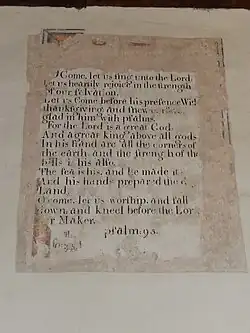 O Come, let us sing unto the Lord,
Let us heartily rejoice in the strength
of our salvation.
Let us Come before his presence Wi
thanksgiving and shew
glad in him with psalms.
For the Lord is a great God
And a great king above all gods
In his hand are all the corners of
the earth, and the strength of th
hills is his also.
The sea is his, and he made it
And his hands prepared the
Land.
O come, let us worship, and fall
down, and kneel before the Lor
r Maker.
psalm 95.